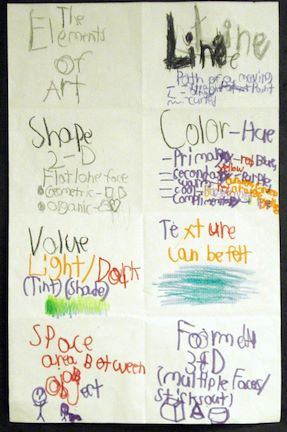 The
Elements
of
Art
Line
Line
Path of a moving
Point
curved
Shape
2-D
Flat lone face
Geometric-
organic-
Color-Hue
-Primary-red Blue
yellow
-Secondary-Purple
-warm
-cool-
-complimentary
Value
Light/Dark
(Tint)(Shade)
Texture
can be felt
Space
area Between
object
Form
3-D
(multiple Faces/
Sticks out)